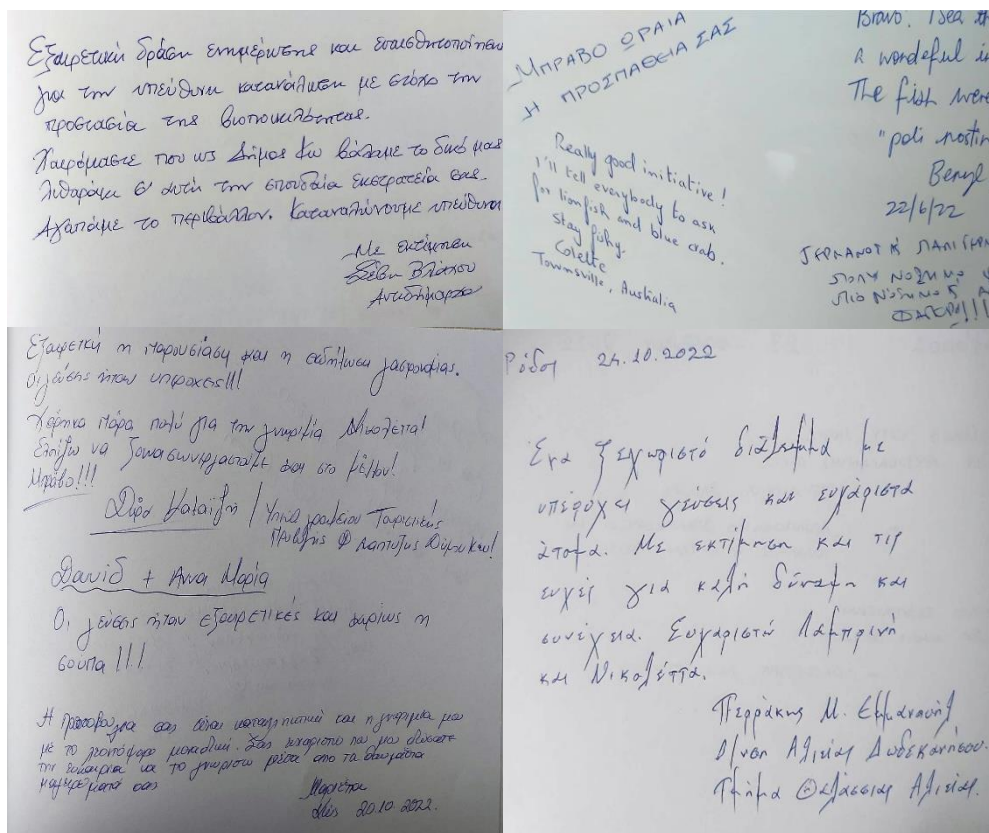 Εξαιρετική δράση ενημέρωσης και ευαισθητοποίησης
για την υπεύθυνη κατανάλωση με στόχο την
προστασία της βιοποικιλότητας.
Χαιρόμαστε που ως Δήμος Κω βάλαμε το δικό μας
λιθαράκι σ' αυτή την σπουδαία εκστρατεία σας.
Αγαπάμε το περιβάλλον. Καταναλώνουμε υπεύθυνα
Με εκτίμηση
Σέβη Βλάχου
Αντιδήμαρχος
ΜΠΡΑΒΟ ΩΡΑΙΑ
Η ΠΡΟΣΠΑΘΕΙΑ ΣΑΣ
Really good initiative!
I'll tell everybody to ask
for lionfish and blue crab.
Stay fishy.
Colette
Townsville, Australia
Bravo. Idea th
a wondeful in
The fish were
"poli nostin
Beryl
22/6/22
ΓΕΡΜΑΝΟΣ Κ
ΠΟΛΥ ΝΟΣΤΙΜΟ
ΠΙΟ ΝΟΣΤΙΜΟ
ΦΑΓΚΡΙ!!!
Εξαιρετική η παρουσίαση και η εκδήλωση γαστρονομίας.
Οι γεύσεις ήταν υπέροχες!!!
Χάρηκα πάρα πολύ για την γνωριμία Νικολέττα!
Ελπίζω να ξανασυνεργαστούμε και στο μέλλον!
Μπράβο!!!
David + Άννα Μαρία
Οι γεύσεις ήταν εξαιρετικές και κυρίως η
σούπα!!!
Η πρωτοβουλία σας είναι καταπληκτική και η γνωριμία μου
με το λεοντόψαρο μοναδική. Σας ευχαριστώ που μου δώσατε
την ευκαιρία να το γνωρίσω μέσα από τα θαυμάσια
μαγειρέματά σας
Μαριέττα
Κως 20.10.2022.
Ρόδος 24.10.2022
Ένα ξεχωριστό διάλειμμα με
υπέροχες γεύσεις και ευχάριστα
άτομα. Με εκτίμηση και τις
ευχές για καλή δύναμη και
συνέχεια. Ευχαριστώ Λαμπρινή
και Νικολέττα.
Περράκης Μ. Εμμανουήλ
Δ/νση Αλιείας Δωδεκανήσου.
Τμήμα Θαλάσσιας Αλιείας.